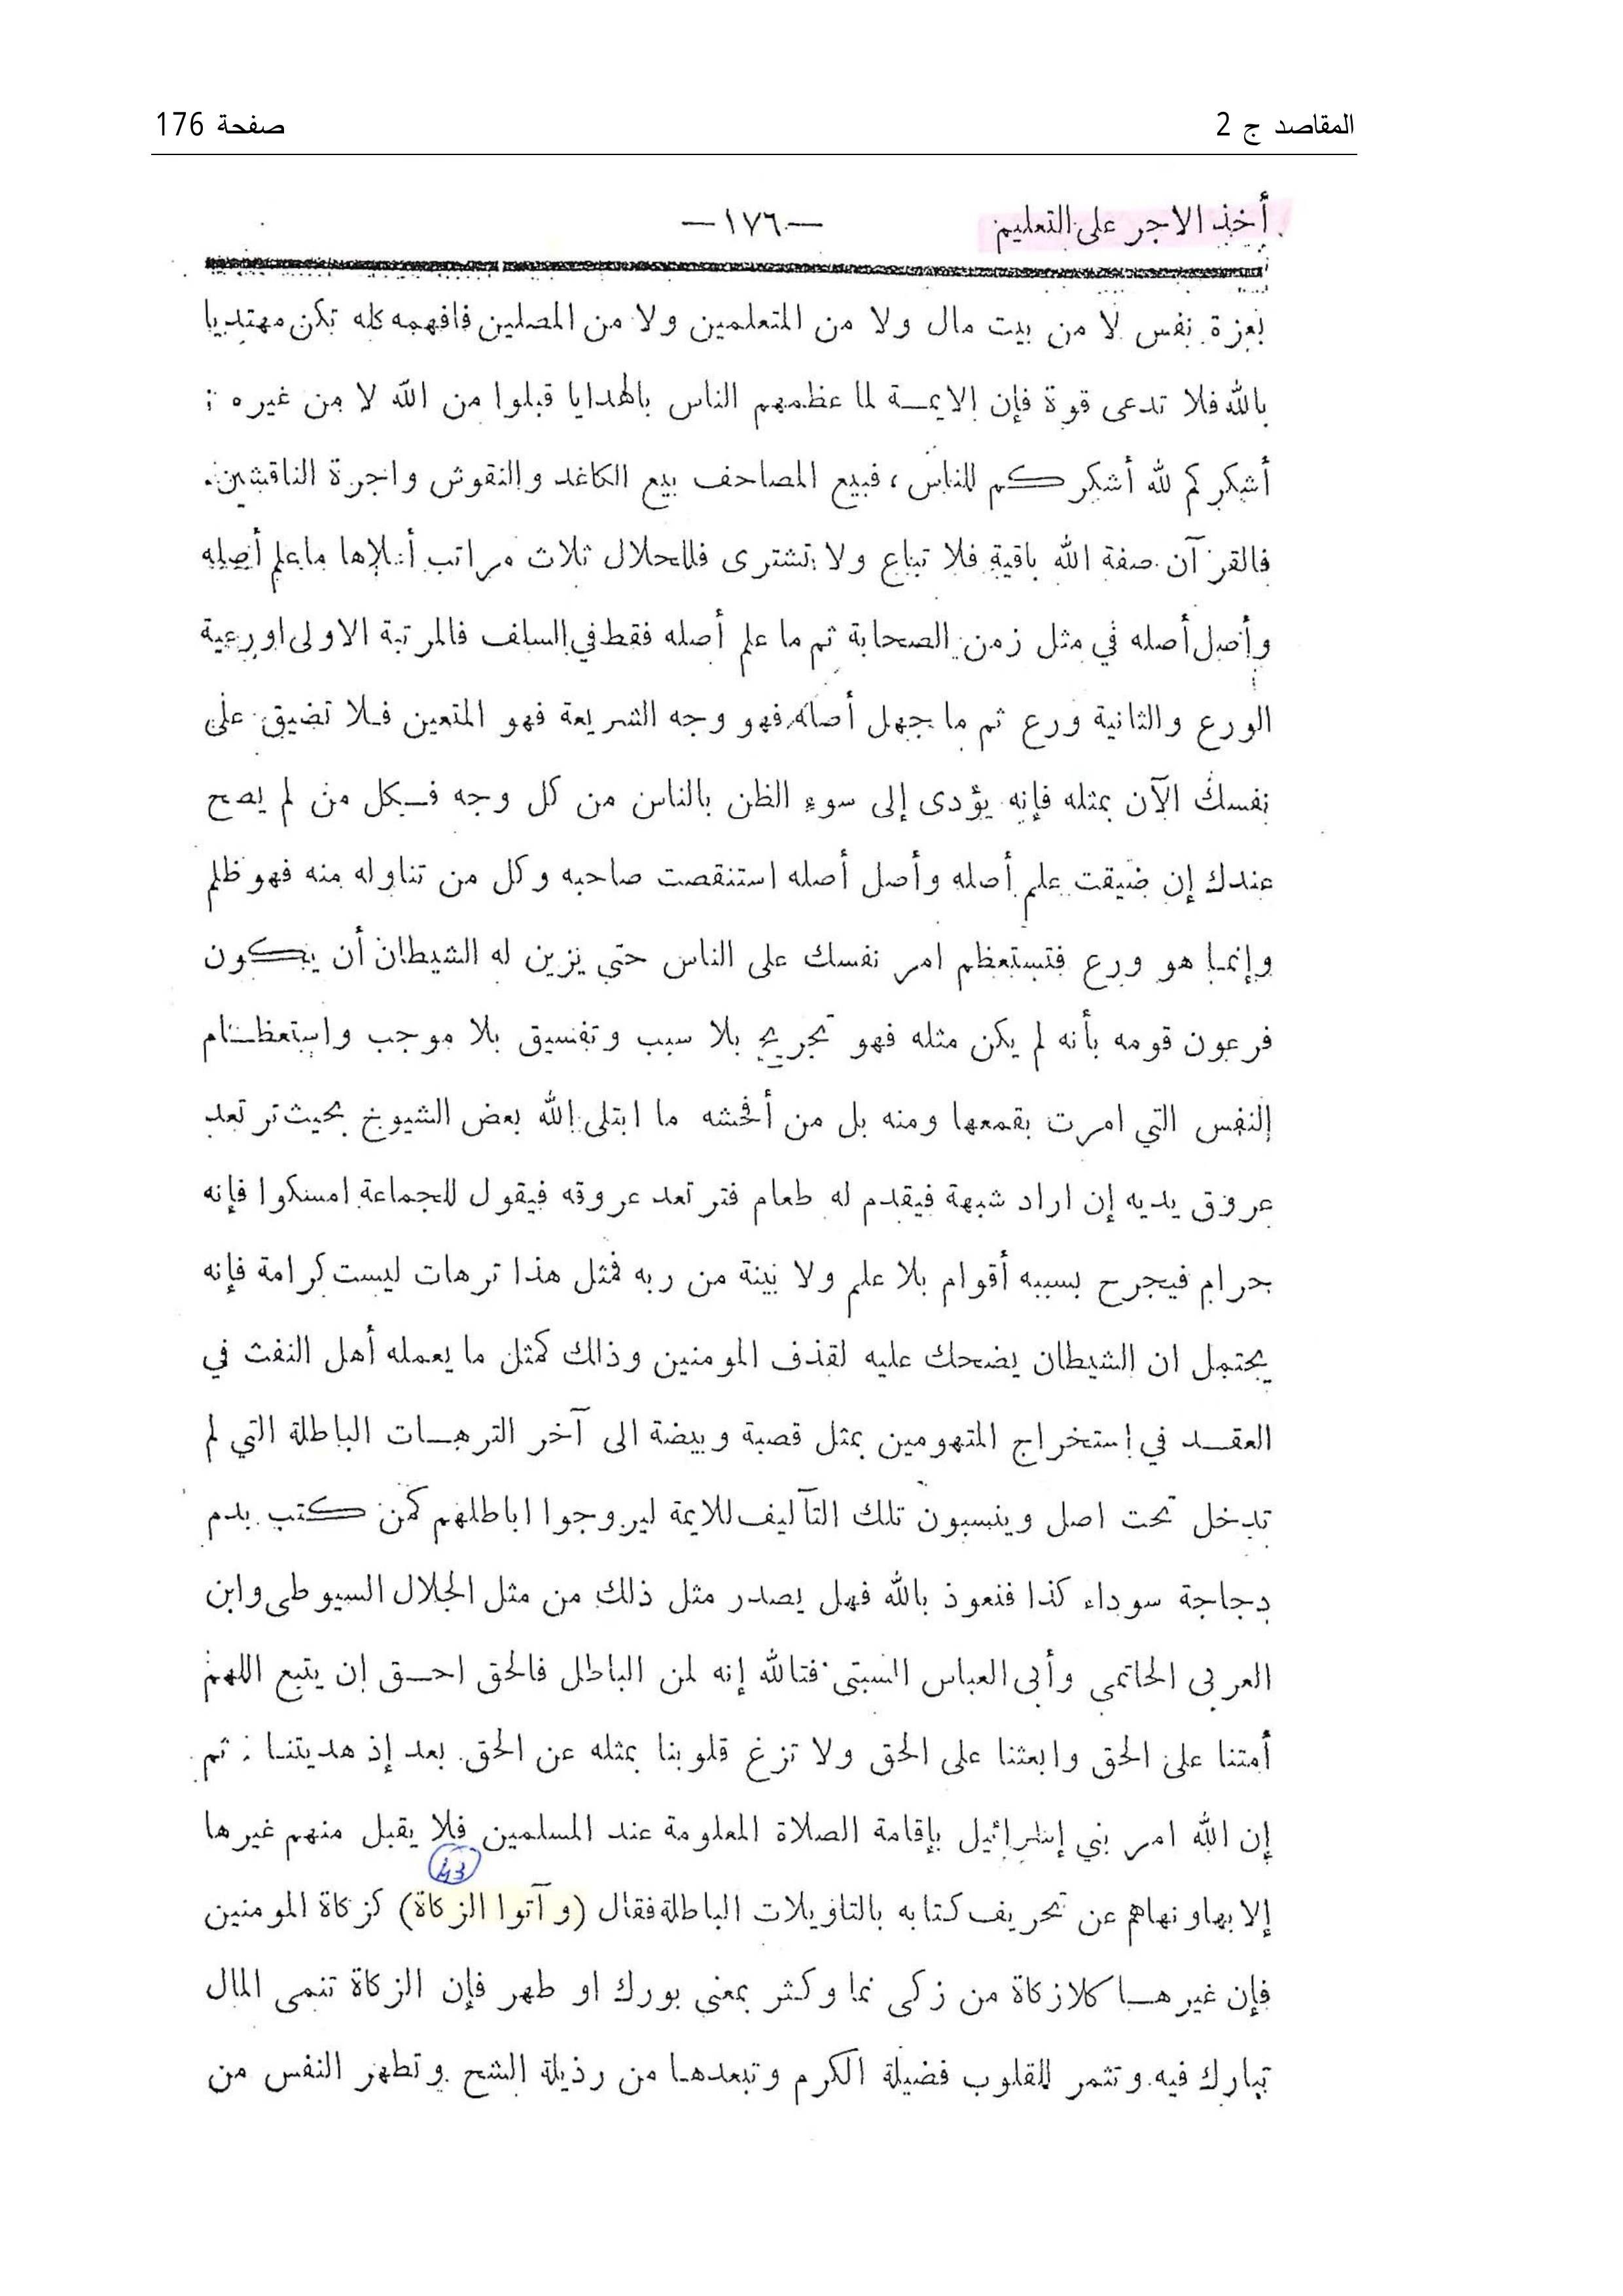 المقاصد ج 2 صفحة 176
أخذ الاجر على التعليم —١٧٦—
بعزة نفس لا من بيت مال ولا من المتعلمين ولا من المصلين فافهمه كله تكن مهتديا
بالله فلا تدعى قوة فإن الايمـة لما عظمهم الناس بالهدايا قبلوا من الله لا من غيره :
أشكركم لله أشكركم للناس ، فبيع المصاحف بيع الكاغد والنقوش واجرة الناقشين .
فالقرآن صفة الله باقية فلا تباع ولا تشترى فللحلال ثلاث مراتب أعلاها ما علم أصله
وأصل أصله في مثل زمن الصحابة ثم ما علم أصله فقط في السلف فالمرتبة الاولى اورعية
الورع والثانية ورع ثم ما جهل أصله فهو وجه الشريعة فهو المتعين فلا تضيق على
نفسك الآن بمثله فإنه يؤدى إلى سوء الظن بالناس من كل وجه فكل من لم يصح
عندك إن ضيقت علم أصله وأصل أصله استنقصت صاحبه وكل من تناوله منه فهو ظلم
وإنما هو ورع فتستعظم امر نفسك على الناس حتى يزين له الشيطان أن يكون
فرعون قومه بأنه لم يكن مثله فهو تجريح بلا سبب وتفسيق بلا موجب واستعظام
النفس التي امرت بقمعها ومنه بل من أفحشه ما ابتلى الله بعض الشيوخ بحيث ترتعد
عروق يديه إن اراد شبهة فيقدم له طعام فترتعد عروقه فيقول للجماعة امسكوا فإنه
حرام فيجرح بسببه أقوام بلا علم ولا بينة من ربه فمثل هذا ترهات ليست كرامة فإنه
يحتمل ان الشيطان يضحك عليه لقذف المومنين وذلك كمثل ما يعمله أهل النفث في
العقـد في إستخراج المتهومين بمثل قصبة وبيضة الى آخر الترهـات الباطلة التي لم
تدخل تحت اصل وينسبون تلك التآليف للايمة ليروجوا اباطلهم كمن كتب بدم
دجاجة سوداء كذا فنعوذ بالله فهل يصدر مثل ذلك من مثل الجلال السيوطى وابن
العربى الحاتمي وأبى العباس السبتى فتالله إنه لمن الباطل فالحق احـق ان يتبع اللهم
أمتنا على الحق وابعثنا على الحق ولا تزغ قلوبنا بمثله عن الحق بعد إذ هديتنـا : ثم
إن الله امر بني إسرائيل بإقامة الصلاة المعلومة عند المسلمين فلا يقبل منهم غيرها
43
إلا بها ونهاهم عن تحريف كتابه بالتاويلات الباطلة فقال (وآتوا الزكاة) كزكاة المومنين
فإن غيرهـا كلا زكاة من زكى نما وكثر بمعنى بورك او طهر فإن الزكاة تنمى المال
تبارك فيه وتثمر للقلوب فضيلة الكرم وتبعدهـا من رذيلة الشح وتطهر النفس من